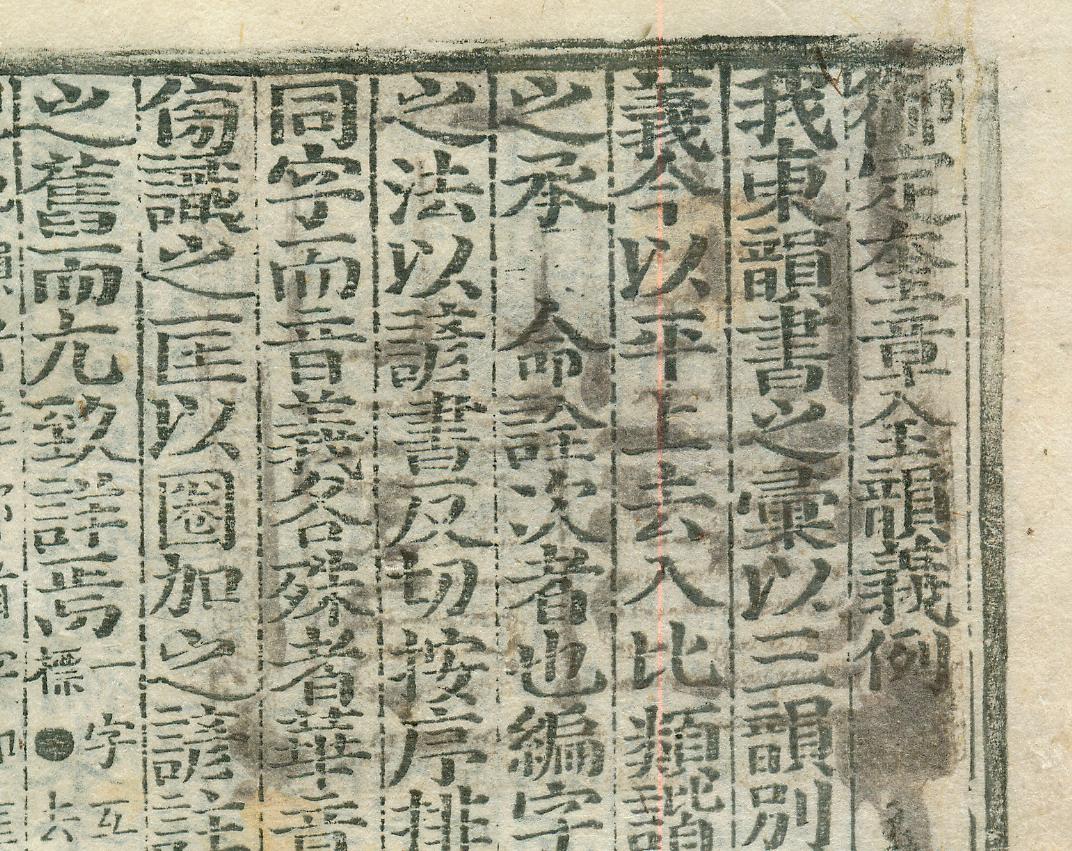 御定奎章全韻義例
我東韻書之彙以三韻別
義今以平上去入比類
之承　命詮次者也編字
之法以諺書反切按序排
同字而音義各殊者華音
傍識之匡以圈加之諺註
之舊而尤致詳焉 一字互 標●六